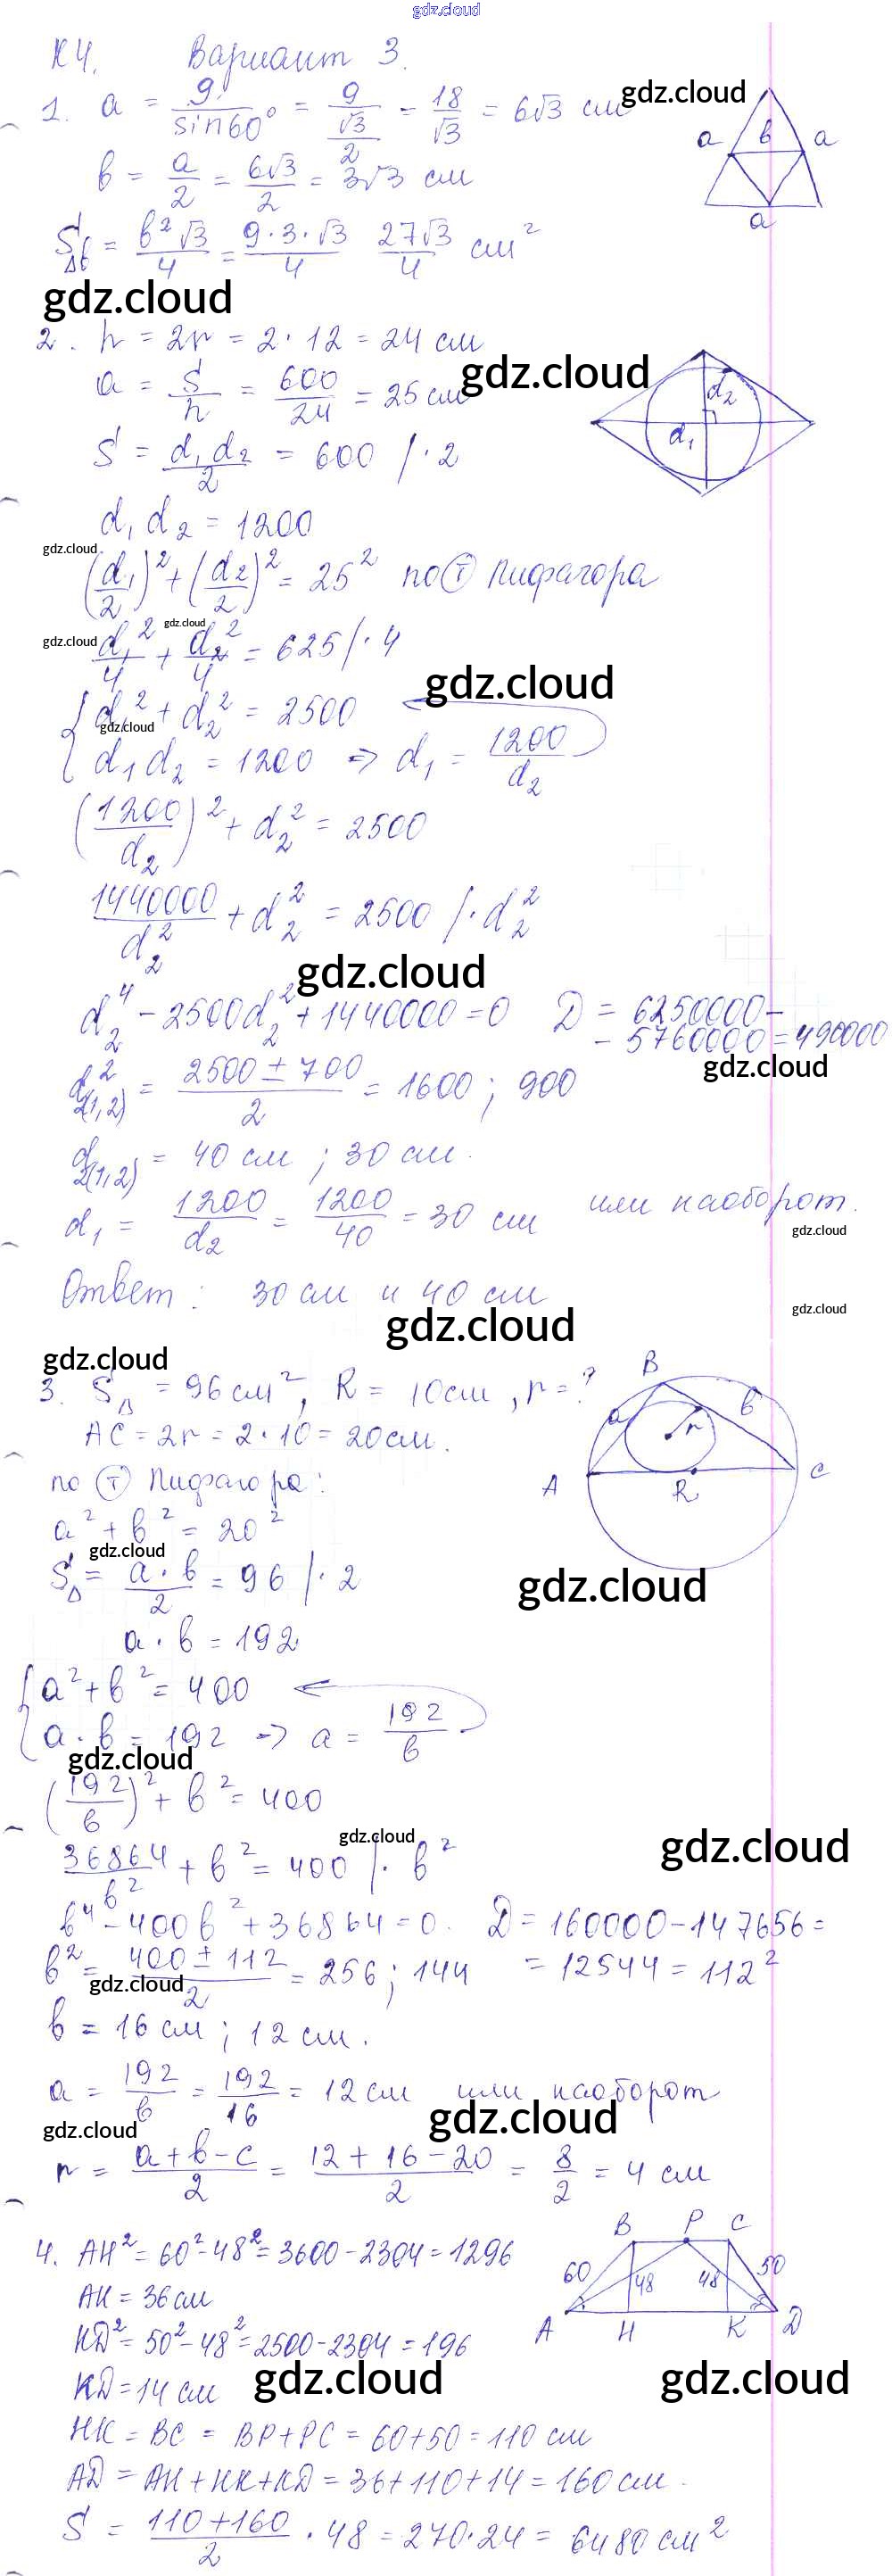 gdz.cloud
К4. Вариант 3.
1. a = 9/sin60° = 9/(√3/2) = 18/√3 = 6√3 см
gdz.cloud
b = a/2 = 6√3/2 = 3√3 см
a b a
a
S△b = b²√3/4 = 9·3·√3/4 27√3/4 см²
gdz.cloud
2. h = 2r = 2·12 = 24 см
a = S/h = 600/24 = 25 см
gdz.cloud
d₂
d₁
S = d₁d₂/2 = 600 /·2
d₁d₂ = 1200
gdz.cloud
(d₁/2)² + (d₂/2)² = 25² по Т Пифагора
gdz.cloud
gdz.cloud
d₁²/4 + d₂²/4 = 625 /·4
gdz.cloud
{ d₁² + d₂² = 2500
gdz.cloud
d₁d₂ = 1200 => d₁ = 1200/d₂
(1200/d₂)² + d₂² = 2500
1440000/d₂² + d₂² = 2500 /·d₂²
gdz.cloud
d₂⁴ - 2500d₂² + 1440000 = 0 D = 6250000 -
- 5760000 = 490000
gdz.cloud
d²₂(1,2) = (2500 ± 700)/2 = 1600; 900
d₂(1,2) = 40 см; 30 см.
d₁ = 1200/d₂ = 1200/40 = 30 см или наоборот.
gdz.cloud
Ответ: 30 см и 40 см
gdz.cloud
gdz.cloud
gdz.cloud
3. S△ = 96 см², R = 10см, r = ?
B
a b
r
A R C
AC = 2r = 2·10 = 20см.
по Т Пифагора:
a² + b² = 20²
gdz.cloud
S△ = a·b/2 = 96 /·2
gdz.cloud
a·b = 192
{ a² + b² = 400
a·b = 192 => a = 192/b
gdz.cloud
(192/b)² + b² = 400
gdz.cloud
gdz.cloud
36864/b² + b² = 400 /·b²
b⁴ - 400b² + 36864 = 0. D = 160000 - 147656 =
b² = (400 ± 112)/2 = 256; 144 = 12544 = 112²
gdz.cloud
b = 16 см; 12 см.
a = 192/b = 192/16 = 12 см или наоборот
gdz.cloud
gdz.cloud
r = (a+b-c)/2 = (12+16-20)/2 = 8/2 = 4 см
4. AH² = 60² - 48² = 3600 - 2304 = 1296
B P C
60 48 48 50
A H K D
AK = 36 см
KD² = 50² - 48² = 2500 - 2304 = 196
gdz.cloud
gdz.cloud
KD = 14 см
HK = BC = BP + PC = 60 + 50 = 110 см
AD = AH + HK + KD = 36 + 110 + 14 = 160 см.
S = (110+160)/2 · 48 = 270·24 = 6480 см²